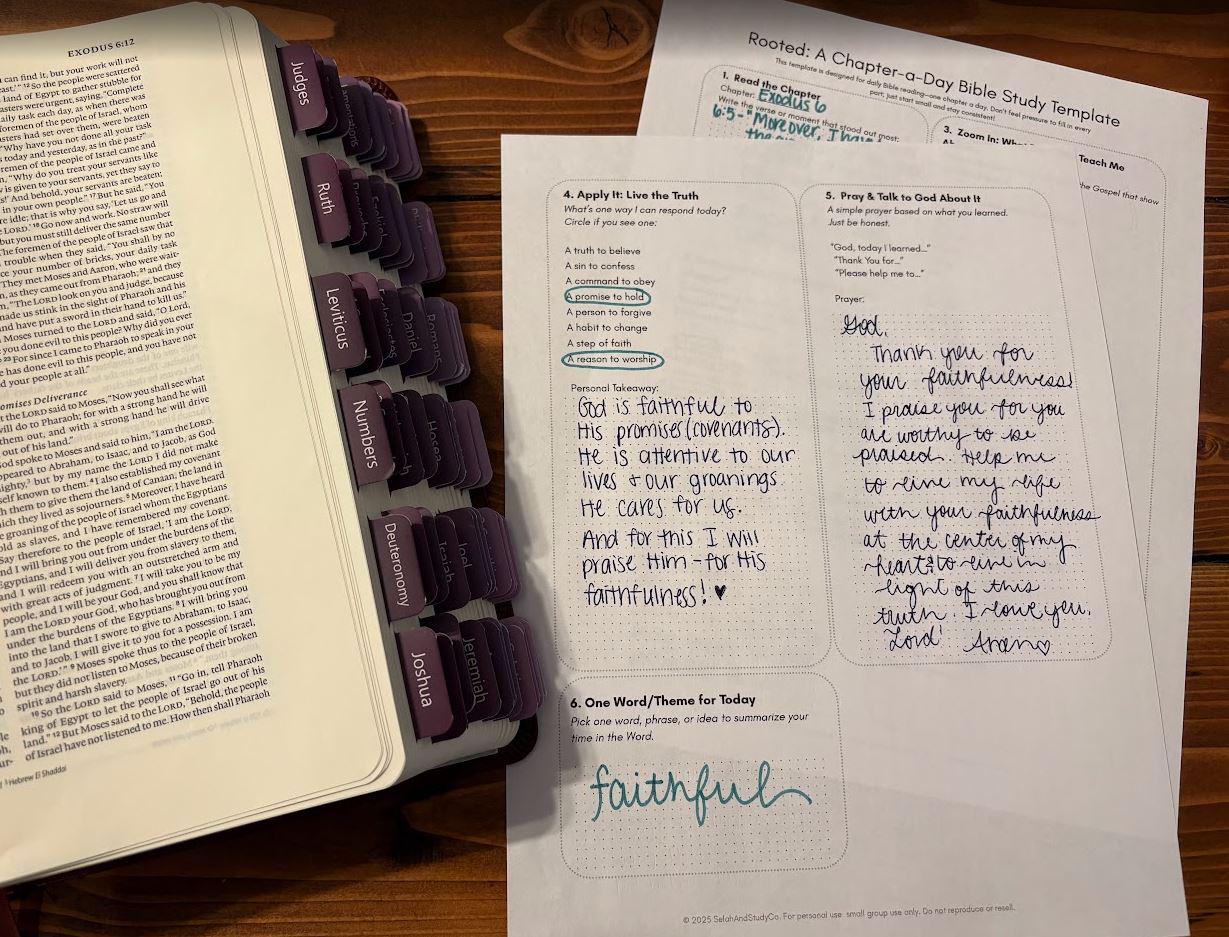 EXODUS 6:12
can find it, but your work will not
east.'" 12 So the people were scattered
land of Egypt to gather stubble for
masters were urgent, saying, "Complete
daily task each day, as when there was
foremen of the people of Israel, whom
masters had set over them, were beaten
"Why have you not done all your task
today and yesterday, as in the past?"
foremen of the people of Israel came and
"Why do you treat your servants like
is given to your servants, yet they say to
And behold, your servants are beaten;
in your own people." 17 But he said, "You
are idle; that is why you say, 'Let us go and
LORD.' 18 Go now and work. No straw will
but you must still deliver the same number
The foremen of the people of Israel saw that
trouble when they said, "You shall by no
your number of bricks, your daily task
They met Moses and Aaron, who were wait-
as they came out from Pharaoh; 21 and they
"The LORD look on you and judge, because
made us stink in the sight of Pharaoh and his
and have put a sword in their hand to kill us."
Moses turned to the LORD and said, "O Lord,
you done evil to this people? Why did you ever
23 For since I came to Pharaoh to speak in your
has done evil to this people, and you have not
your people at all."
Promises Deliverance
the LORD said to Moses, "Now you shall see what
will do to Pharaoh; for with a strong hand he will
them out, and with a strong hand he will drive
out of his land."
God spoke to Moses and said to him, "I am the LORD.
appeared to Abraham, to Isaac, and to Jacob, as God
Almighty, but by my name the LORD I did not make
myself known to them. 4 I also established my covenant
with them to give them the land of Canaan, the land in
which they lived as sojourners. 5 Moreover, I have heard
the groaning of the people of Israel whom the Egyptians
hold as slaves, and I have remembered my covenant.
Say therefore to the people of Israel, 'I am the LORD,
and I will bring you out from under the burdens of the
Egyptians, and I will deliver you from slavery to them,
and I will redeem you with an outstretched arm and
with great acts of judgment. 7 I will take you to be my
people, and I will be your God, and you shall know that
I am the LORD your God, who has brought you out from
under the burdens of the Egyptians. 8 I will bring you
into the land that I swore to give to Abraham, to Isaac,
and to Jacob. I will give it to you for a possession. I am
the LORD.'" 9 Moses spoke thus to the people of Israel,
but they did not listen to Moses, because of their broken
spirit and harsh slavery.
10 So the LORD said to Moses, 11 "Go in, tell Pharaoh
king of Egypt to let the people of Israel go out of his
land." 12 But Moses said to the LORD, "Behold, the people
of Israel have not listened to me. How then shall Pharaoh
Hebrew El Shaddai
Judges
Ruth
Leviticus
Numbers
Deuteronomy
Joshua
Daniel
Romans
Hosea
Isaiah
Joel
Jeremiah
Rooted: A Chapter-a-Day Bible Study Template
This template is designed for daily Bible reading—one chapter a day. Don't feel pressure to fill in every
part; just start small and stay consistent!
1. Read the Chapter
Chapter: Exodus 6
Write the verse or moment that stood out most:
6:5- "Moreover, I have
3. Zoom In:
Teach Me
the Gospel that show
4. Apply It: Live the Truth
What's one way I can respond today?
Circle if you see one:
A truth to believe
A sin to confess
A command to obey
A promise to hold
A person to forgive
A habit to change
A step of faith
A reason to worship
Personal Takeaway:
God is faithful to
His promises (covenants).
He is attentive to our
lives + our groanings
He cares for us.
And for this I will
praise Him - for His
faithfulness! ♥
5. Pray & Talk to God About It
A simple prayer based on what you learned.
Just be honest.
"God, today I learned..."
"Thank You for..."
"Please help me to..."
Prayer:
God,
Thank you for
your faithfulness!
I praise you for you
are worthy to be
praised. Help me
to live my life
with your faithfulness
at the center of my
heart to live in
light of this
truth. I love you,
Lord!
6. One Word/Theme for Today
Pick one word, phrase, or idea to summarize your
time in the Word.
faithful
© 2025 SelahAndStudyCo. For personal use small group use only. Do not reproduce or resell.